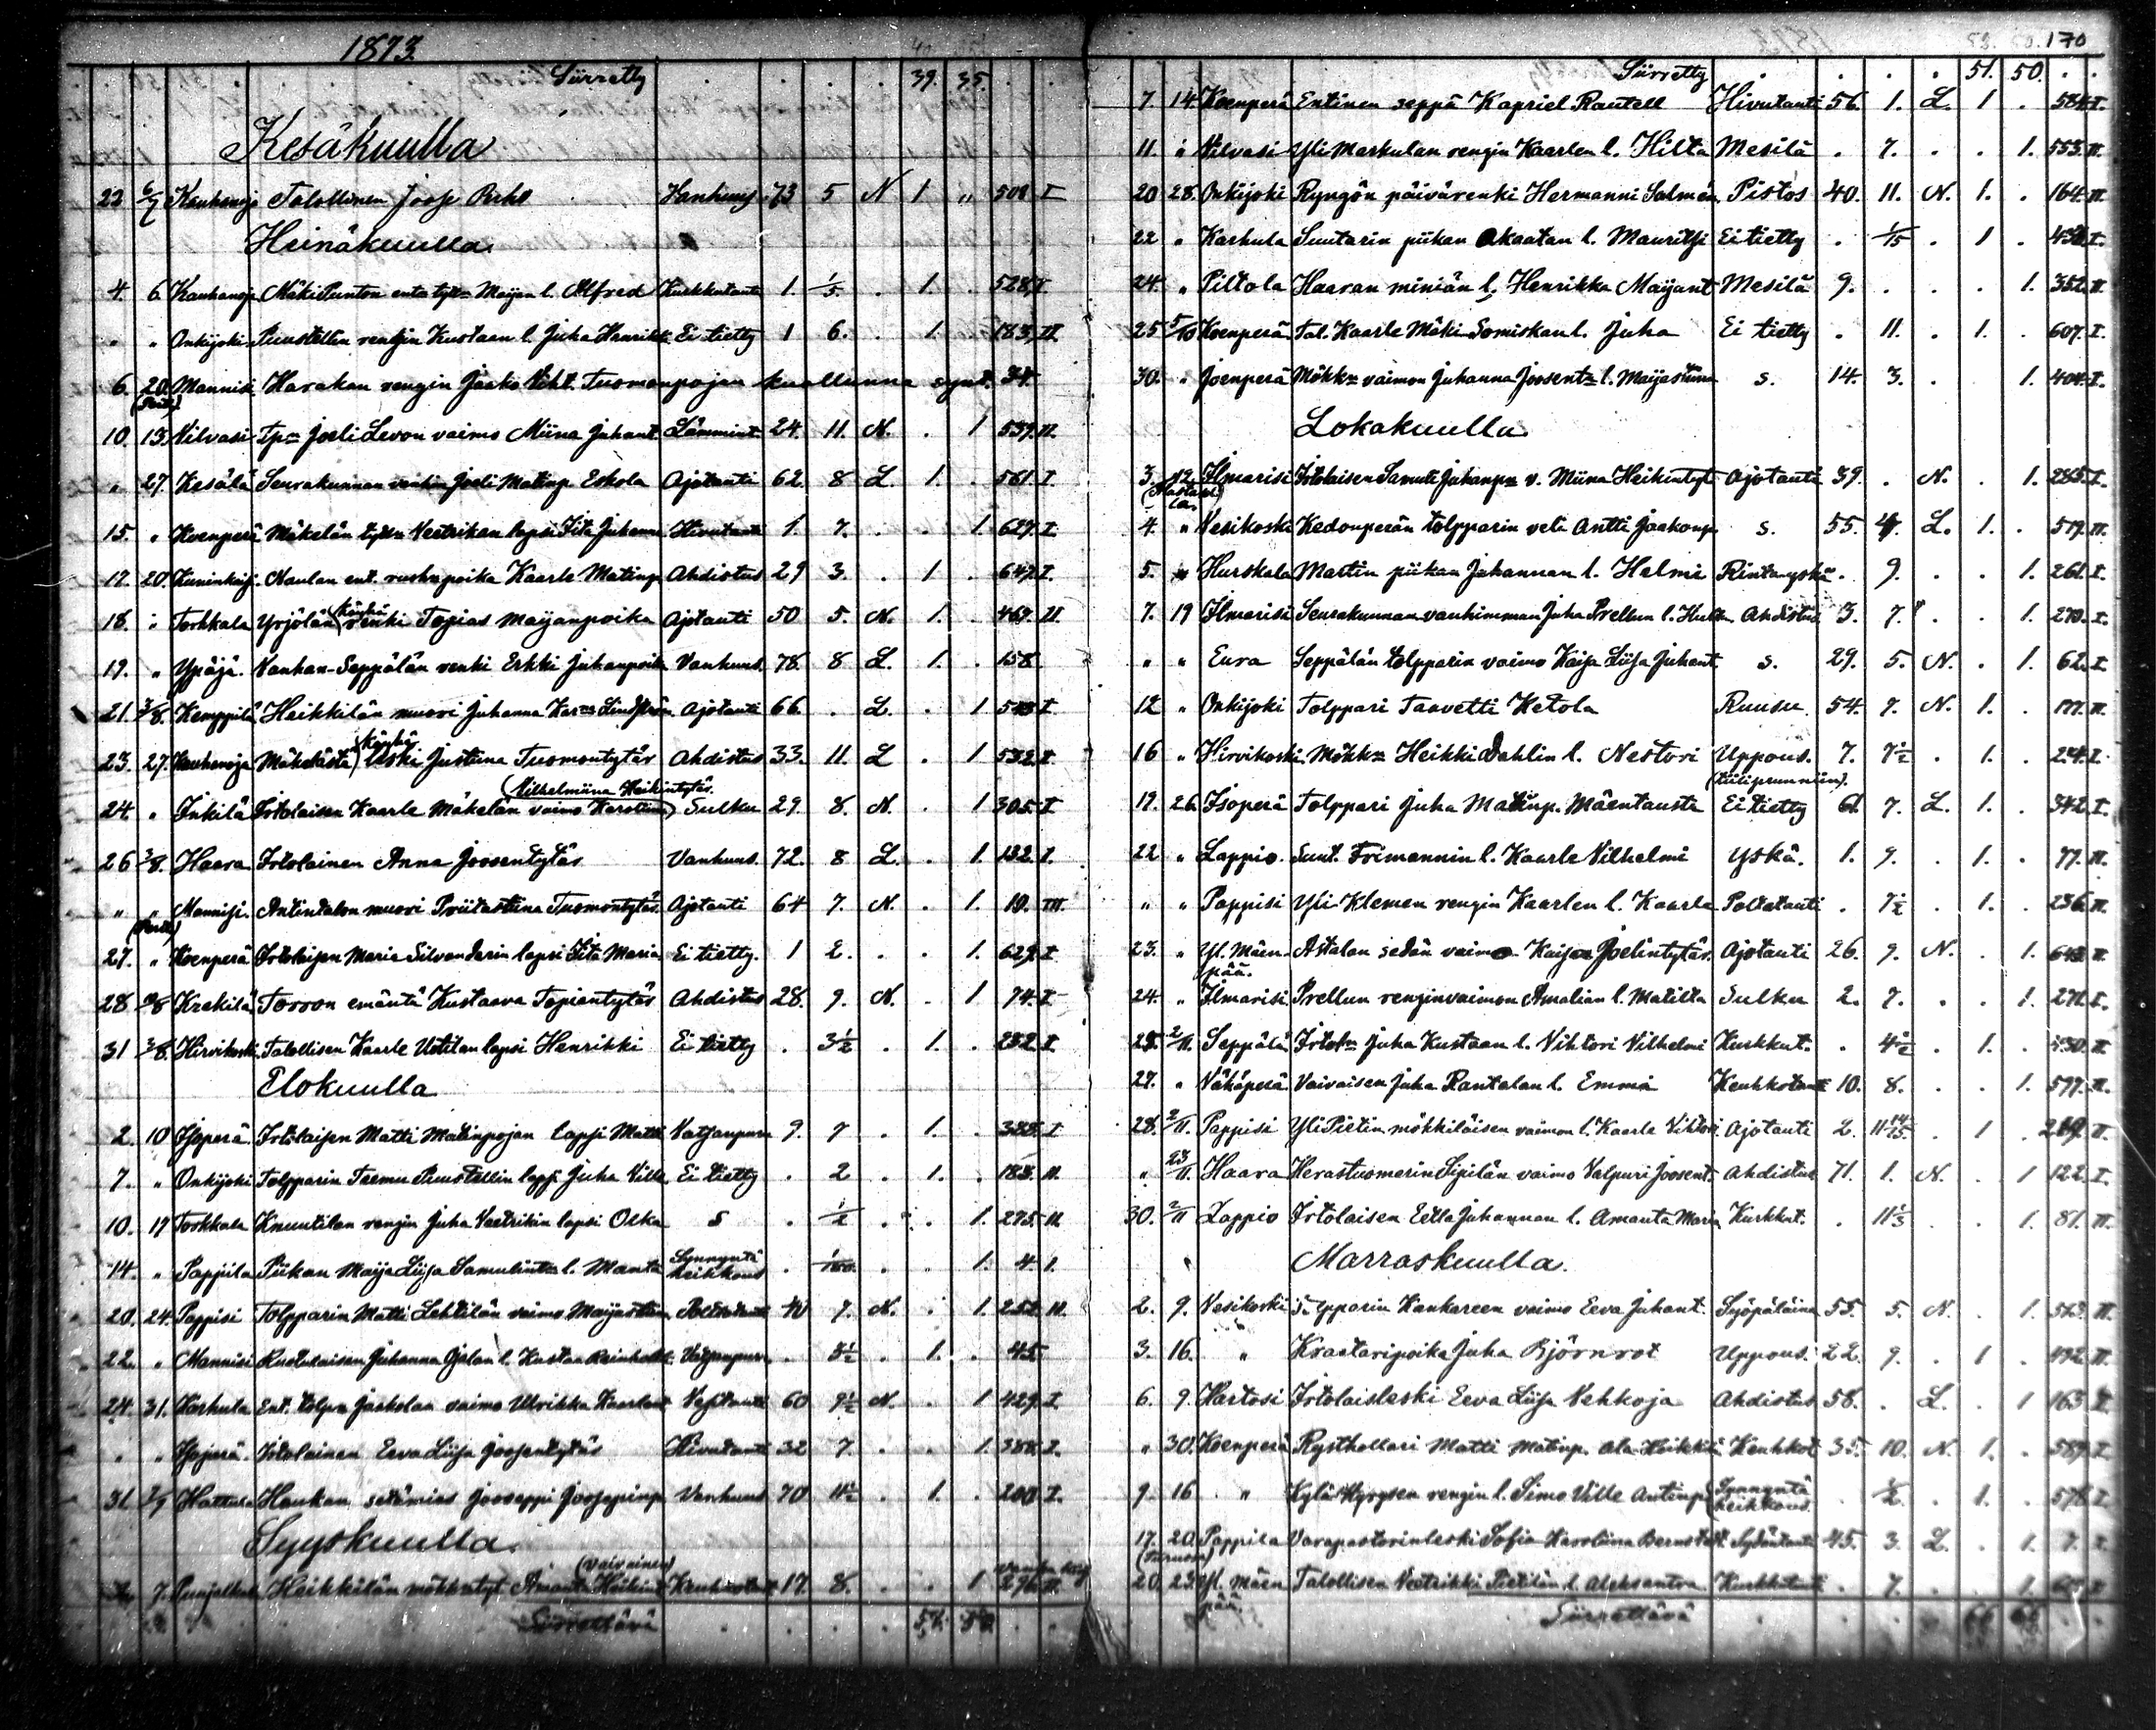 1873.
Siirretty . . . . 39. 35. . .
Kesäkuulla
22 6/7 Kauhanoja Talollinen Joop Vanhuus 73 5 N 1 " 508 I
Heinäkuulla
4. 6 Kauhanoja Mäki Maijan l. Alfred Kurkkutauti 1. 1/5 . 1. 528 I
" " Onkijoki Puustellin rengin Kustaan l. Juha Henrikki Ei tietty 1 6. . 1. 183. II.
6. 20. Mannisi Harakan rengin Jaako Vihl. Tuomonpojan kuollunna synt. 34.
10. 13. Vilvasi Tpr Joeli Levon vaimo Miina Juhant. Lämmint. 24. 11. N. . 1 539. II.
" 27. Kesälä Seurakunnan vanhin Joeli Matinp. Eskola Ajotauti 62. 8 L 1. . 561 I
15. " Koenperä Mäkelän Veetrikan lapsi Iita Juhanna Hivutauti 1. 7. . . 1. 629. I
17. 20. Kuninkaisj. Naulan ent. poika Kaarle Matinp. Ahdistus 29 3. . 1. . 647. I.
18. " Torkkala Yrjölän köyhä renki Topias Maijanpoika Ajotauti 50 5. N. 1. . 467. II
19. " Ypäjä. Vanhan-Seppälän renki Erkki Juhanpoika Vanhuus. 78. 8 L. 1. . 158
21. 3/8. Kemppilä Heikkilän muori Juhanna Lindström Ajotauti 66. . L. . 1 I
23. 27. Kauhanoja Mäkelästä köyhä leski Justiina Tuomontytär Ahdistus 33. 11. L . 1 532 I
(Vilhelmiina Heikintytär.
24. " Inkilä Irtolaisen Kaarle Mäkelän vaimo Karoliina) Sulku 29. 8. N. . 1 305. I
26 3/8. Haara Irtolainen Anna Joosentytär Vanhuus. 72. 8 L. . 1. 132 I.
" " Mannisi. Anlindalon muori Priitastiina Tuomontytär Ajotauti 64 7. N. . 1. 19. III.
27. " Koenperä Irtolaisen Maria Silvanderin lapsi Iita Maria Ei tietty. 1 2. . . 1. 629 I
28. Krekilä Torron emäntä Kustaava Topiantytär Ahdistus 28. 9. N. . 1 74. I
31 3/8. Hirvikoski Talollisen Kaarle Uotilan lapsi Henrikki Ei tietty . 3 1/2 . 1. . 232 I
Elokuulla
2. 10 Isoperä Irtolaisen Matti Matinpojan lapsi Matti Vatsanpuru 9. 7 . 1. . 388. I
7. " Onkijoki Tolpparin Teemu Puustellin lapsi Juha Ville Ei tietty . 2 . 1. . 183. II.
10. 17 Torkkala Knuutilan rengin Juha Veetrikin lapsi Olka s . 1/2 . . 1. 275. II.
14. " Pappila Piikan Maija Liisa Samulint. l. Manta Synnyntä heikkous . . . 1. 4 I.
20. 24. Pappisi Tolpparin Matti Lehtilän vaimo Maijastiina Polttotauti 40 7. N. . 1. 252. II.
22. " Mannisi Ruotulaisen Juhanna Ojalan l. Kustaa Reinholt. Vatsanpuru . 5 1/2 . 1. . 45
24. 31. Karhula Ent. tolpr Jaakolan vaimo Ulrikka Kaarlent. Vesitauti 60 9 1/2 N. . 1 429. I
" " Isoperä. Irtolainen Eeva Liisa Joosentytär Hivutauti 32 7. . . 1. 388. I.
31. 7/9 Hattula Haukan setämies Jooseppi Joosepinp. Vanhuus 70 11 1/2 . 1. . 200 I.
Syyskuulla.
(vaivainen)
7. Heikkilän mökkitytt. Amanta Heikint. 17. 8. . . 1 296. II.
Siirrettävä . . . 51. 50. . .
170
Siirretty . . . . 51. 50. . .
7. 14. Koenperä Entinen seppä Kapriel Rautell Hivutauti 56. 1. L. 1 . 584. I.
11. " Vilvasi Yli Markulan rengin Kaarlen l. Hilta Mesilä . 7. . . 1. 553. II.
20 28. Onkijoki Ryngön päivärenki Hermanni Salmén Pistos 40. 11. N. 1. . 164. II.
22 " Karhula Suutarin piikan Akaatan l. Mauritsi Ei tietty . 1/15 . 1 . 436. I.
24. " Piltola Haaran miniän l. Henrikka Maijant. Mesilä 9. . . . 1. 352. II.
25 5/10 Koenperä Tal. Kaarle Mäki Somiskan l. Juha Ei tietty . 11. . 1. 607. I.
30. " Joenperä Mökkr vaimon Juhanna Joosentr l. Maijastiina s. 14. 3. . 1. 404. I.
Lokakuulla
3. 12. Ilmarisi Irtolaisen Samuli Juhanpr v. Miina Heikintyt. Ajotauti 39. . N. . 1. 285. I.
4. " Vesikoski Kedonperän tolpparin veli Antti Jaakonp. s. 55. 4. L. 1. . 519. II.
5. " Hurskala Mattin piikan Juhannan l. Helmi Rintayskä . 9. . . 1. 261. I.
7. 19 Ilmarisi Seurakunnan vanhimman Juha Prellun l. Ahdistus 3. 7. . . 1. 270. I.
" " Eura Seppälän tolpparin vaimo Kaisa Liisa Juhant. s. 29. 5. N. . 1. 62. I
12 " Onkijoki Tolppari Taavetti Ketola Ruusu 54. 7. N. 1. . 177. II.
16 " Hirvikoski Mökkr Heikki Dahlin l. Nestori Uppous. 7. 7 1/2 . 1. . 224. I.
(tiilipruunniin).
19. 26. Isoperä Tolppari Juha Matinp. Mäentausta Ei tietty 61. 7. L. 1. . 342. I.
22 " Loppio. Suut. Frimannin l. Kaarle Vilhelmi Yskä. 1. 9. . 1. . 77. II.
" " Pappisi Yli-Klemen rengin Kaarlen l. Kaarle Poltotauti . 7 1/2 . 1. . 236. II.
23. " Yl. Mäenpää. Astalan sedän vaimo Kaisa Joelintytär. Ajotauti 26. 9. N. . 1. 643. II
24. " Ilmarisi Prellun renginvaimon Amalian l. Matilta Sulku 2. 7. . . 1. 271. I.
25. 2/11. Seppälä Irtolr Juha Kustaan l. Vihtori Vilhelmi Kurkkut. . 4 1/2 . 1. . II
27. " Vähäperä Vaivaisen Juha Rantalan l. Emma Keuhkotauti 10. 8. . . 1. 577. II.
28. 2/11. Pappisi Yli Pietin mökkiläisen vaimon l. Kaarle Vihtori. Ajotauti 2. 11 . 1 . 219. II.
" 23/11. Haara Herastuomarin Sipilän vaimo Valpuri Joosent. Ahdistus 71. 1. N. . 1 122. I.
30. 2/11 Loppio Irtolaisen Eetla Juhannan l. Amanta Maria Kurkkut. . 11 1/3 . . 1. 81. II.
Marraskuulla.
2. 9. Vesikoski Tolpparin Kankareen vaimo Eeva Juhant. Syöpäläinen 55. 5. N. . 1. 563. II.
3. 16. " Kraataripoika Juha Björnrot Uppous. 22. 9. . 1 . 492. II.
6. 9. Hartosi Irtolaisleski Eeva Liisa Vehkoja Ahdistus 58. . L. . 1 163 I.
" 30. Koenperä Rysthollari Matti Matinp. Ala-Heikkilä Keuhkot. 35. 10. N. 1. . 589. I.
9. 16 " Kylä-Hyrysen rengin l. Simo Ville Antinp. (Synnyntä heikkous. . 1/2 . 1. . 578. I
17. 20. Pappila Varapastorinleski Sofia Karoliina Sydäntauti 45. 3. L. . 1. 7. I.
20. 23. Yl. Mäenpää. Talollisen Veetrikki Pietilän l. Aleksantra Kurkkutauti . 7. . . 1.
Siirrettävä